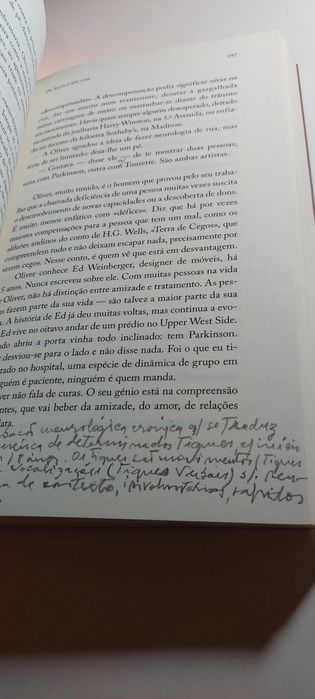 197
«descompensadas». A descompensação podia significar uivar na
rua, dar um murro num transeunte, desatar à gargalhada
numa carruagem de metro ou masturbar-se diante do trânsito
em movimento. Havia quase sempre alguém desesperado, deitado
da joalharia Harry Winston, na 5.ª Avenida, ou enfia-
do no recesso da leiloeira Sotheby's, na Madison.
A Oliver agradou a ideia de fazer neurologia de rua, mas
teria de ser limitado: doía-lhe um pé.
— Gostava — disse ele — de te mostrar duas pessoas,
uma com Parkinson, outra com Tourette. São ambas artistas.
Oliver, muito tímido, é o homem que provou pelo seu traba-
lho que a chamada deficiência de uma pessoa muitas vezes suscita
o desenvolvimento de novas capacidades ou a descoberta de dons.
É muito menos enfático com «défices». Diz que há por vezes
maiores compensações para a pessoa que tem um mal, como os
aldeões andinos do conto de H.G. Wells, «Terra de Cegos», que
compreendem tudo e não deixam escapar nada, precisamente por
serem cegos. Nesse conto, é quem vê que está em desvantagem.
Oliver conhece Ed Weinberger, designer de móveis, há
5 anos. Nunca escreveu sobre ele. Com muitas pessoas na vida
Oliver, não há distinção entre amizade e tratamento. As pes-
fazem parte da sua vida — são talvez a maior parte da sua
A história de Ed já deu muitas voltas, mas continua a evo-
Ed vive no oitavo andar de um prédio no Upper West Side.
ndo abriu a porta vinha todo inclinado: tem Parkinson.
desviou-se para o lado e não disse nada. Foi o que eu ti-
tado no hospital, uma espécie de dinâmica de grupo em
guém é paciente, ninguém é quem manda.
ver não fala de curas. O seu génio está na compreensão
ntes, que vai beber da amizade, do amor, de relações
lata.
neurológica crónica q/ se traduz
de determinados tiques, c/ início
anos. Os tiques são movimentos/tiques
vocalizações (tiques verbais) s/
de contexto, involuntários, rápidos